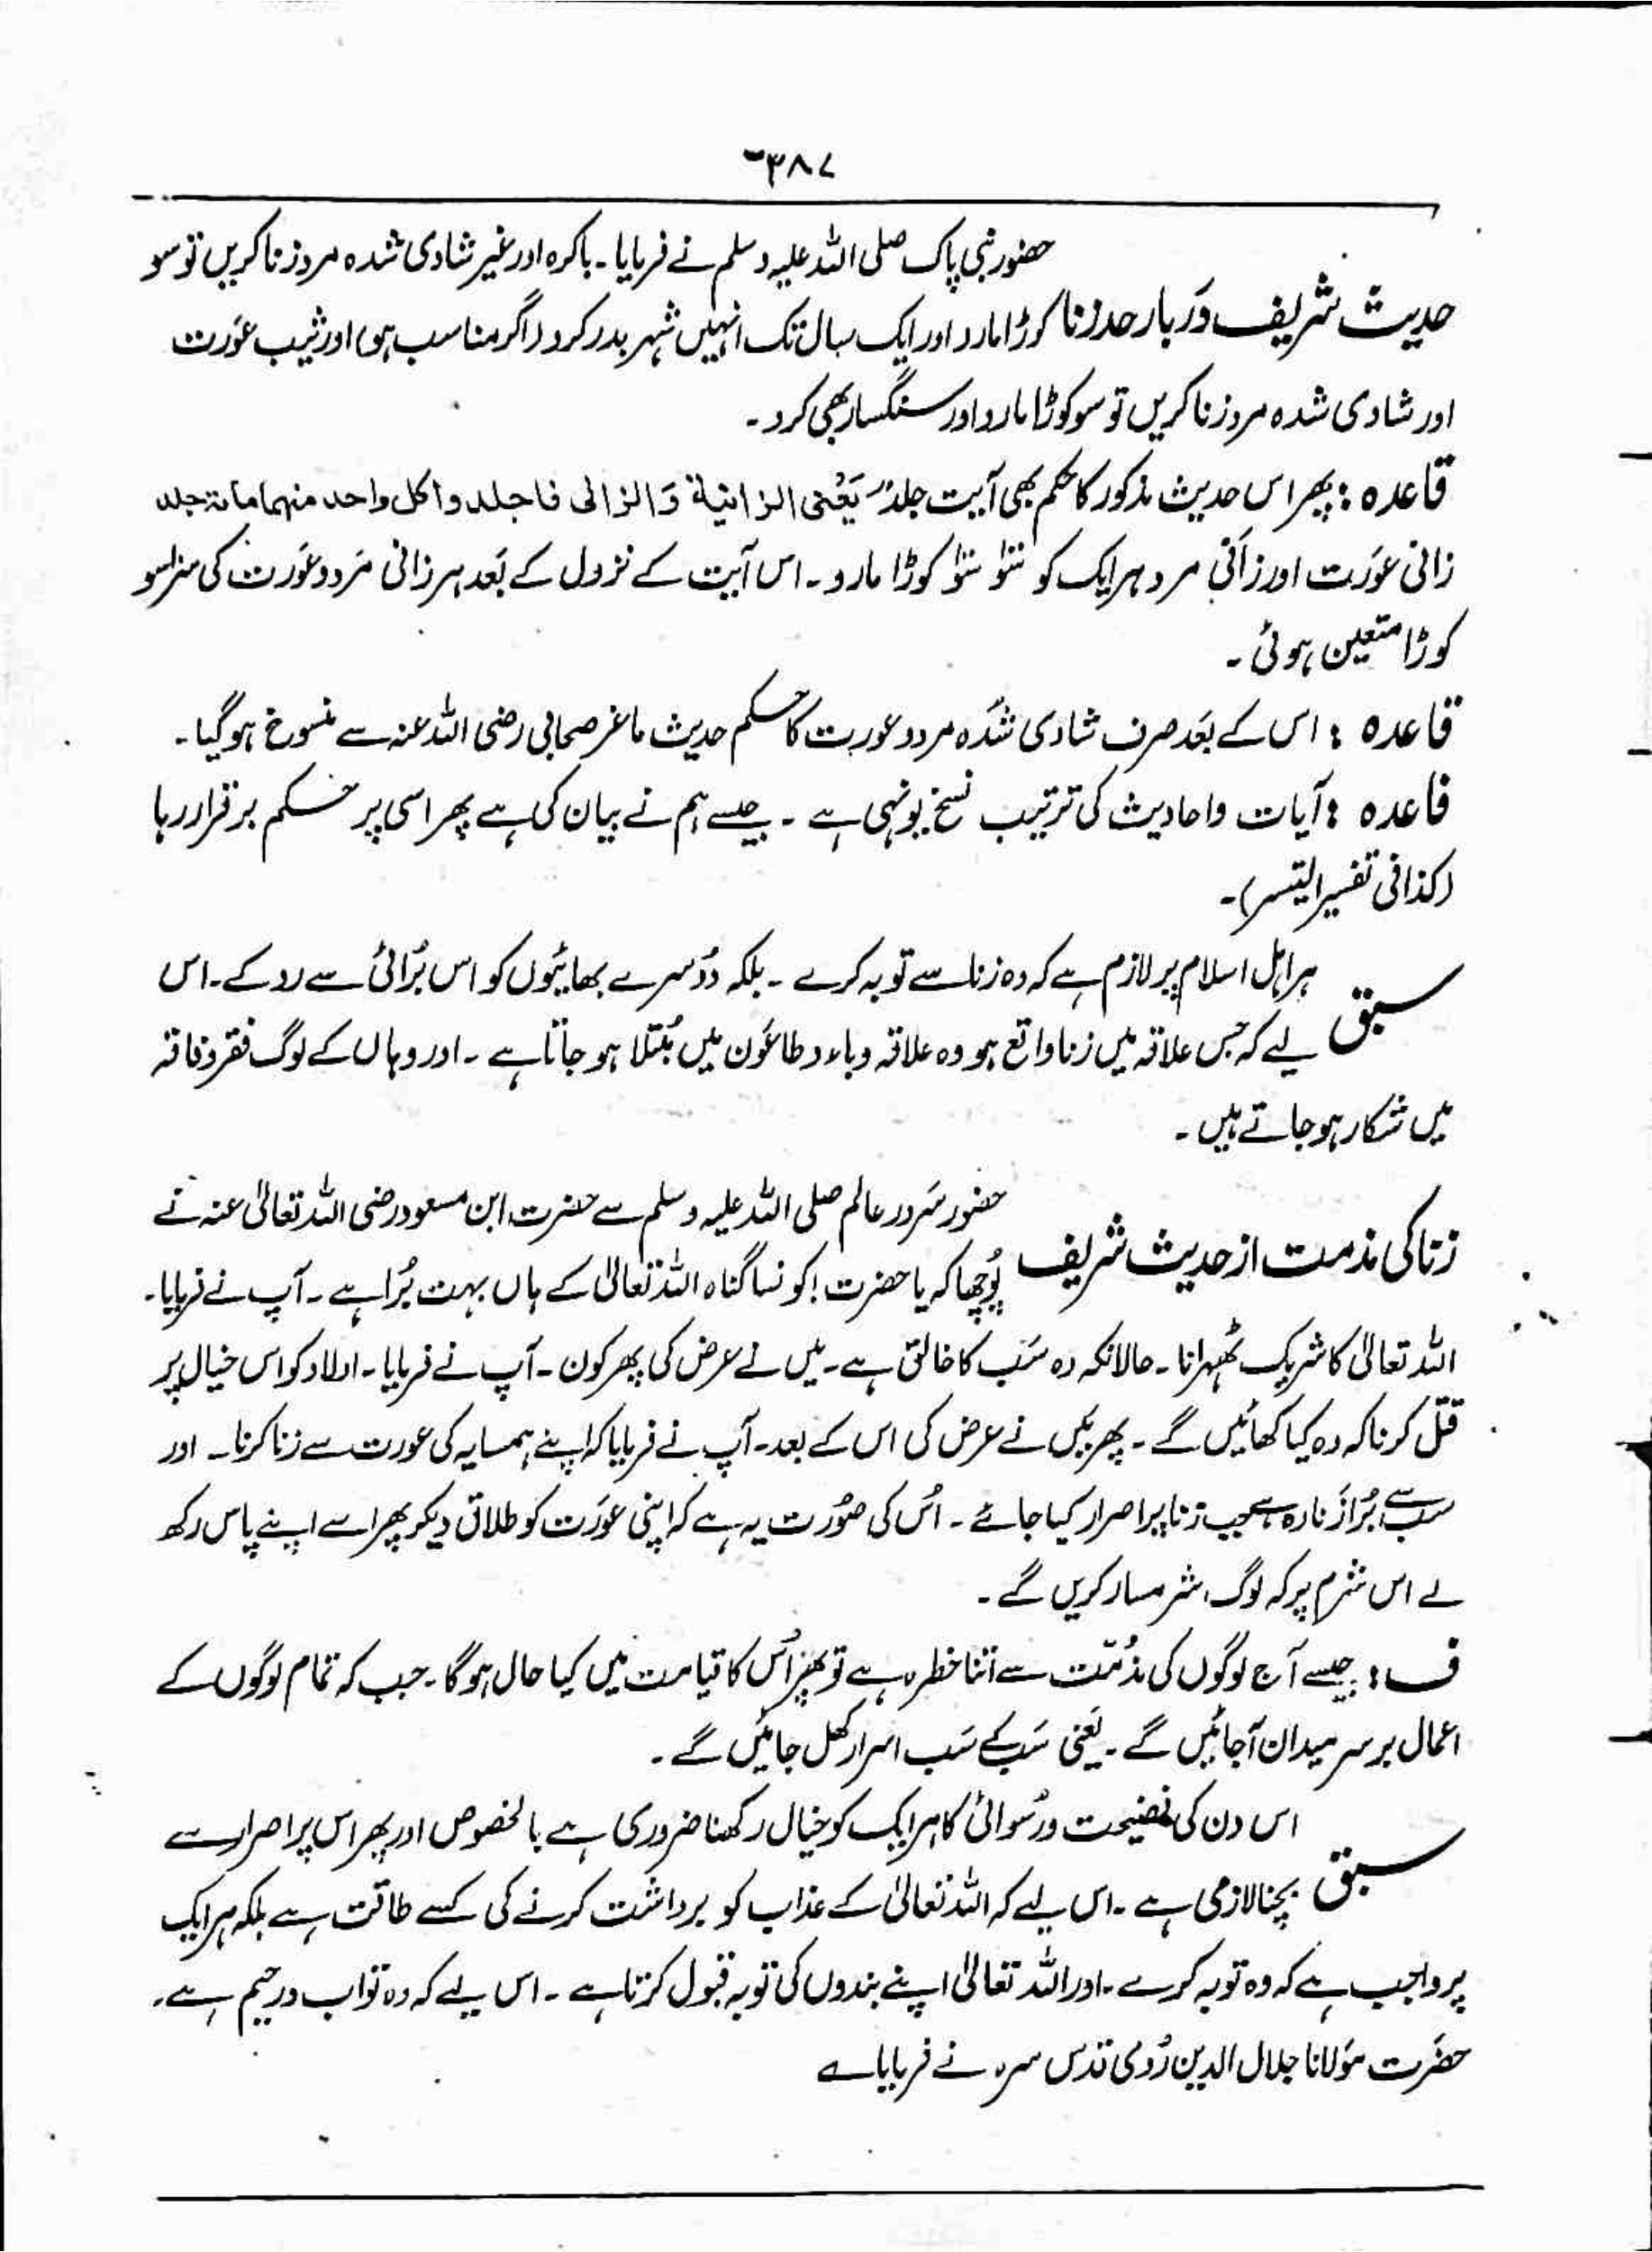 ۳۸۷
حضور نبی پاک صلی اللہ علیہ وسلم نے فرمایا۔ باکرہ اور غیر شادی شدہ مرد زنا کریں تو سو
حدیث شریف دربار حد زنا کوڑا مارو اور ایک سال تک انہیں شہر بدر کردو (اگر مناسب ہو) اور ثیب عورت
اور شادی شدہ مرد زنا کریں تو سو کوڑا مارو اور سنگسار بھی کرو۔
قاعدہ : پھر اس حدیث مذکور کا حکم بھی آیت جلد یَعْنی الزانیة وَالزانی فاجلدوا کل واحد منہما مائۃ جلد
زانی عَورت اور زانی مرد ہر ایک کو سَو سَو کوڑا مارو۔ اس آیت کے نزول کے بَعد ہر زانی مَرد و عَورت کی سزا سو
کوڑا متعین ہوئی۔
قاعدہ : اس کے بَعد صرف شادی شدَہ مرد و عورت کا حکم حدیث ماعز صحابی رضی اللہ عنہ سے منسوخ ہو گیا۔
قاعدہ : آیات و احادیث کی ترتیب نسخ یونہی ہے۔ جیسے ہم نے بیان کی ہے پھر اسی پر حکم برقرار رہا
(کذافی تفسیر التیسر)۔
ہر اہل اسلام پر لازم ہے کہ وہ زنا سے توبہ کرے۔ بلکہ دُوسرے بھائیوں کو اس بُرائی سے روکے۔ اس
سبق لیے کہ جس علاقہ میں زنا واقع ہو وہ علاقہ وباء و طاعُون میں مُبتلا ہو جاتا ہے۔ اور وہاں کے لوگ فقر و فاقہ
میں شکار ہو جاتے ہیں۔
حضور سَرور عالم صلی اللہ علیہ وسلم سے حضرت ابن مسعود رضی اللہ تعالیٰ عنہ نے
زنا کی مذمت از حدیث شریف پُوچھا کہ یا حضرت! کونسا گناہ اللہ تعالیٰ کے ہاں بہت بُرا ہے۔ آپ نے فرمایا۔
اللہ تعالیٰ کا شریک ٹھہرانا۔ حالانکہ وہ سَب کا خالق ہے۔ میں نے عرض کی پھر کون۔ آپ نے فرمایا۔ اولاد کو اس خیال پر
قتل کرنا کہ وہ کیا کھائیں گے۔ پھر میَں نے عرض کی اس کے بعد۔ آپ نے فرمایا کہ اپنے ہمسایہ کی عورت سے زنا کرنا۔ اور
سب سے بُرا زنا وہ ہے جب زنا پر اصرار کیا جائے۔ اُس کی صُورت یہ ہے کہ اپنی عَورت کو طلاق دیکر پھر اسے اپنے پاس رکھ
لے اس شرم پر کہ لوگ شرمسار کریں گے۔
ف : جیسے آج لوگوں کی مذُمّت سے اتنا خطرہ ہے تو پھر اُس کا قیامت میں کیا حال ہو گا۔ جب کہ تمام لوگوں کے
اعمال برسرِ میدان آجائیں گے۔ یَعنی سَب کے سَب اسرار کھل جائیں گے۔
اس دن کی فضیحت و رُسوائی کا ہر ایک کو خیال رکھنا ضروری ہے بالخصوص اور پھر اس پر اصرار سے
سبق بچنا لازمی ہے۔ اس لیے کہ اللہ تعالیٰ کے عذاب کو برداشت کرنے کی کسے طاقت ہے بلکہ ہر ایک
پر واجب ہے کہ وہ توبہ کرے۔ اور اللہ تعالیٰ اپنے بندوں کی توبہ قبول کرتا ہے۔ اس لیے کہ وہ تواب و رحیم ہے۔
حضَرت مَولانا جلال الدین رُومی قدس سرہ نے فرمایا ؎